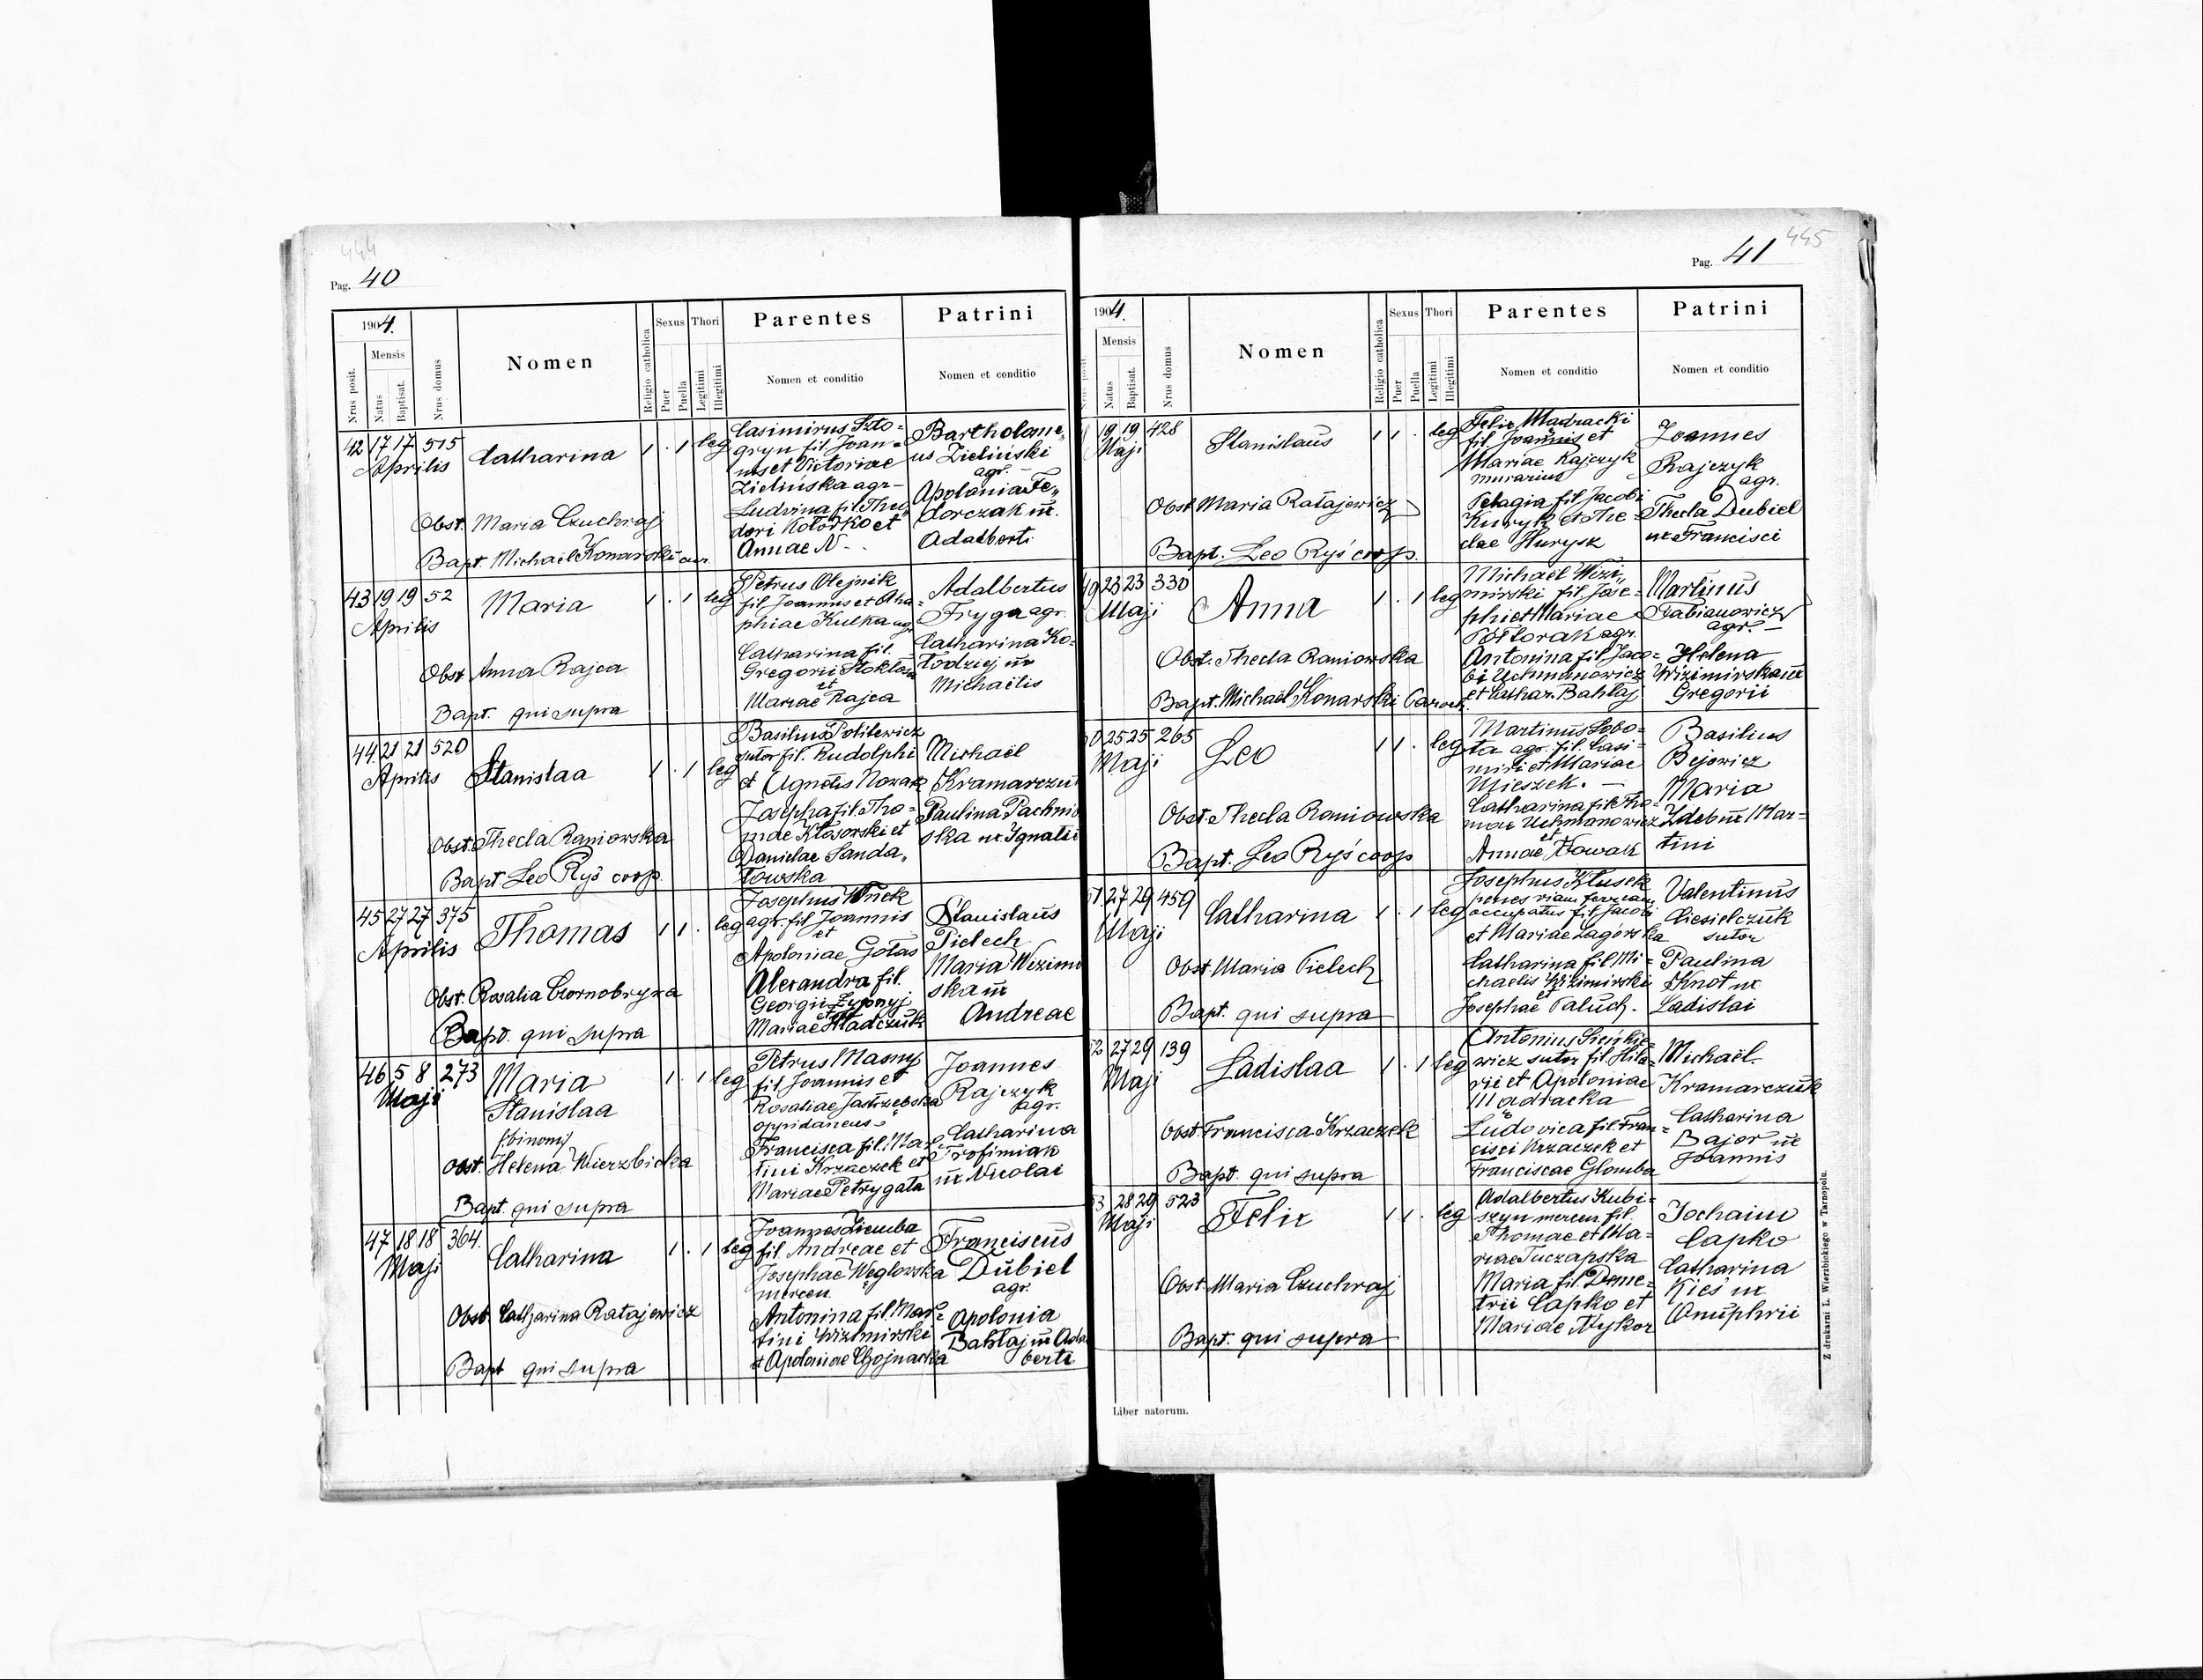 444
Pag. 40
1904.
Mensis
Nrus posit.
Natus
Baptisat.
Nrus domus
Nomen
Religio catholica
Sexus
Puer
Puella
Thori
Legitimi
Illegitimi
Parentes
Nomen et conditio
Patrini
Nomen et conditio
42 17 17 515
Aprilis
Catharina
1 . 1 leg
Casimirus Szto=
gryn fil. Joan=
nis et Victoriae
Zielińska agr-
Ludvina fil. Theo
dori Kołodko et
Annae N-
Bartholome„
us Zieliński
agr. -
Apolonia Fe„
dorczak m.
Adalberti
Obst. Maria Czuchraj
Bapt. Michael Konarski cur.
43 19 19 52
Aprilis
Maria
1 . 1 leg
Petrus Olejnik
fil. Joannis et
phiae Kulka agr
Catharina fil.
Gregorii
et
Mariae Rajca
Adalbertus
Fryga agr.
Catharina Ko=
łodziej m
Michaëlis
Obst Anna Rajca
Bapt. qui supra
44. 21 21 520
Aprilis
Stanislaa
1 . 1 leg
Basilius Politewicz
sutor fil. Rudolphi
et Agnetis Nowak
Josepha fil. Tho=
mae Kłosorski et
Danielae Sanda„
łowska
Michaël
Kramarczuk
Paulina Pachni
ska ux Ignatii
Obst. Thecla Raniowska
Bapt. Leo Ryś coop.
45 27 27 375
Aprilis
Thomas
1 1 . leg
Josephus Wnek
agr. fil Joannis
et
Apoloniae Gołas
Alexandra fil.
Georgii Zyponyj
et
Mariae Hładczuk
Stanislaus
Pielech
Maria Wizimi
ska m
Andreae
Obst. Rosalia Czornobryva
Bapt. qui supra
46 5 8 273
Maji
Maria
Stanislaa
(binom)
1 . 1 leg
Petrus Masny
fil. Joannis et
Rosaliae Jastrzebska
oppidaneus
Francisca fil. Mar=
tini Krzaczek et
Mariae Petrygata
Joannes
Rajczyk
agr.
Catharina
Trofimiak
ux Nicolai
Obst. Helena Wierzbicka
Bapt. qui supra
47 18 18 364.
Maji
Catharina
1 . 1 leg
Joannes Ziemba
fil. Andreae et
Josephae Węglowska
mercen.
Antonina fil. Mar=
tini Wizimirski
et Apoloniae Chojnacka
Franciscus
Dubiel
agr.
Apolonia
Bahłaj m Adal
berti
Obst. Catharina Ratajewicz
Bapt qui supra
445
Pag. 41
1904.
Mensis
Natus
Baptisat.
Nrus domus
Nomen
Religio catholica
Sexus
Puer
Puella
Thori
Legitimi
Illegitimi
Parentes
Nomen et conditio
Patrini
Nomen et conditio
19 19 428
Maji
Stanislaus
1 1 . leg
Felix Madracki
fil. Joannis et
Mariae Rajczyk
murarius
Pelagia fil. Jacobi
Kuryk et The=
clae Hurysk
Joannes
Rajczyk
agr.
Thecla Dubiel
ux Francisci
Obst Maria Ratajewicz
Bapt. Leo Ryś coop.
49 23 23 330
Maji
Anna
1 . 1 leg
Michaël Wizi„
mirski fil. Jose=
phi et Mariae
Połtorak agr.
Antonina fil. Jaco=
bi Uchmanowicz
et Cathar. Bahłaj
Martinus
Fabianowicz
agr. -
Helena
Wizimirska m
Gregorii
Obst. Thecla Raniowska
Bapt. Michaël Konarski Paroch.
0 25 25 265
Maji
Leo
1 1 . leg
Martinus Sobo=
ta agr. fil. Casi=
miri et Mariae
Mieszek. -
Catharina fil. Tho=
mae Uchmanowicz
et
Annae Nowak
Basilius
Bejowicz
Maria
Zdeb m Mar=
tini
Obst. Thecla Raniowska
Bapt. Leo Ryś coop
51. 27 29 459
Maji
Catharina
1 . 1 leg
Josephus Klusek
penes viam ferream
occupatus fil. Jacobi
et Mariae Zagórska
Catharina fil. Mi=
chaelis Wizimirski
et
Josephae Paluch.
Valentinus
Ciesielczuk
sutor
Paulina
Knot ux
Ladislai
Obst. Maria Pielech
Bapt. qui supra
52 27 29 139
Maji
Ladislaa
1 . 1 leg
Antonius Sieńkie=
wicz sutor fil. Hila=
rii et Apoloniae
Mądracka
Ludovica fil. Fran=
cisci Krzaczek et
Franciscae Glomba
Michaël
Kramarczuk
Catharina
Bajor m
Joannis
Obst Francisca Krzaczek
Bapt. qui supra
3 28 29 523
Maji
Felix
1 1 . leg
Adalbertus Kubi=
szyn mercen. fil.
Thomae et Ma=
riae Tuczapska
Maria fil. Deme=
trii Capko et
Mariae Nykor
Jochaim
Capko
Catharina
Kieś ux
Onuphrii
Obst. Maria Czuchraj
Bapt. qui supra
Liber natorum.
Z drukarni L. Wierzbickiego w Tarnopolu.